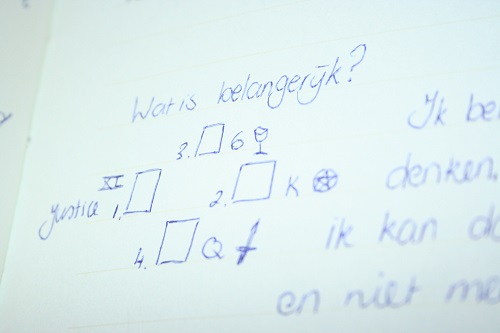 Wat is belangerijk?
3. 6
XI
Justice 1.
2. K
4. Q
Ik be
denken,
ik kan da
en niet me